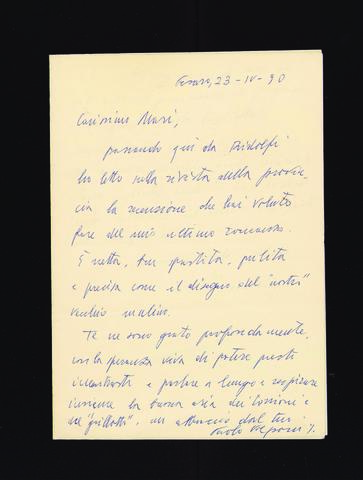 Pesaro, 23 - IV - 90
Carissimo Mari,
passando qui da Ridolfi
ho letto sulla rivista della provin
cia la recensione che hai voluto
fare del mio ultimo romanzo.
È netta, pulita
e precisa come il disegno del "nostro"
vecchio mulino.
Te ne sono grato profondamente,
con la speranza viva di poterci presto
incontrare e parlare a lungo e respirare
insieme la buona aria dei
del "grillotti", un abbraccio dal tuo
Paolo Volponi